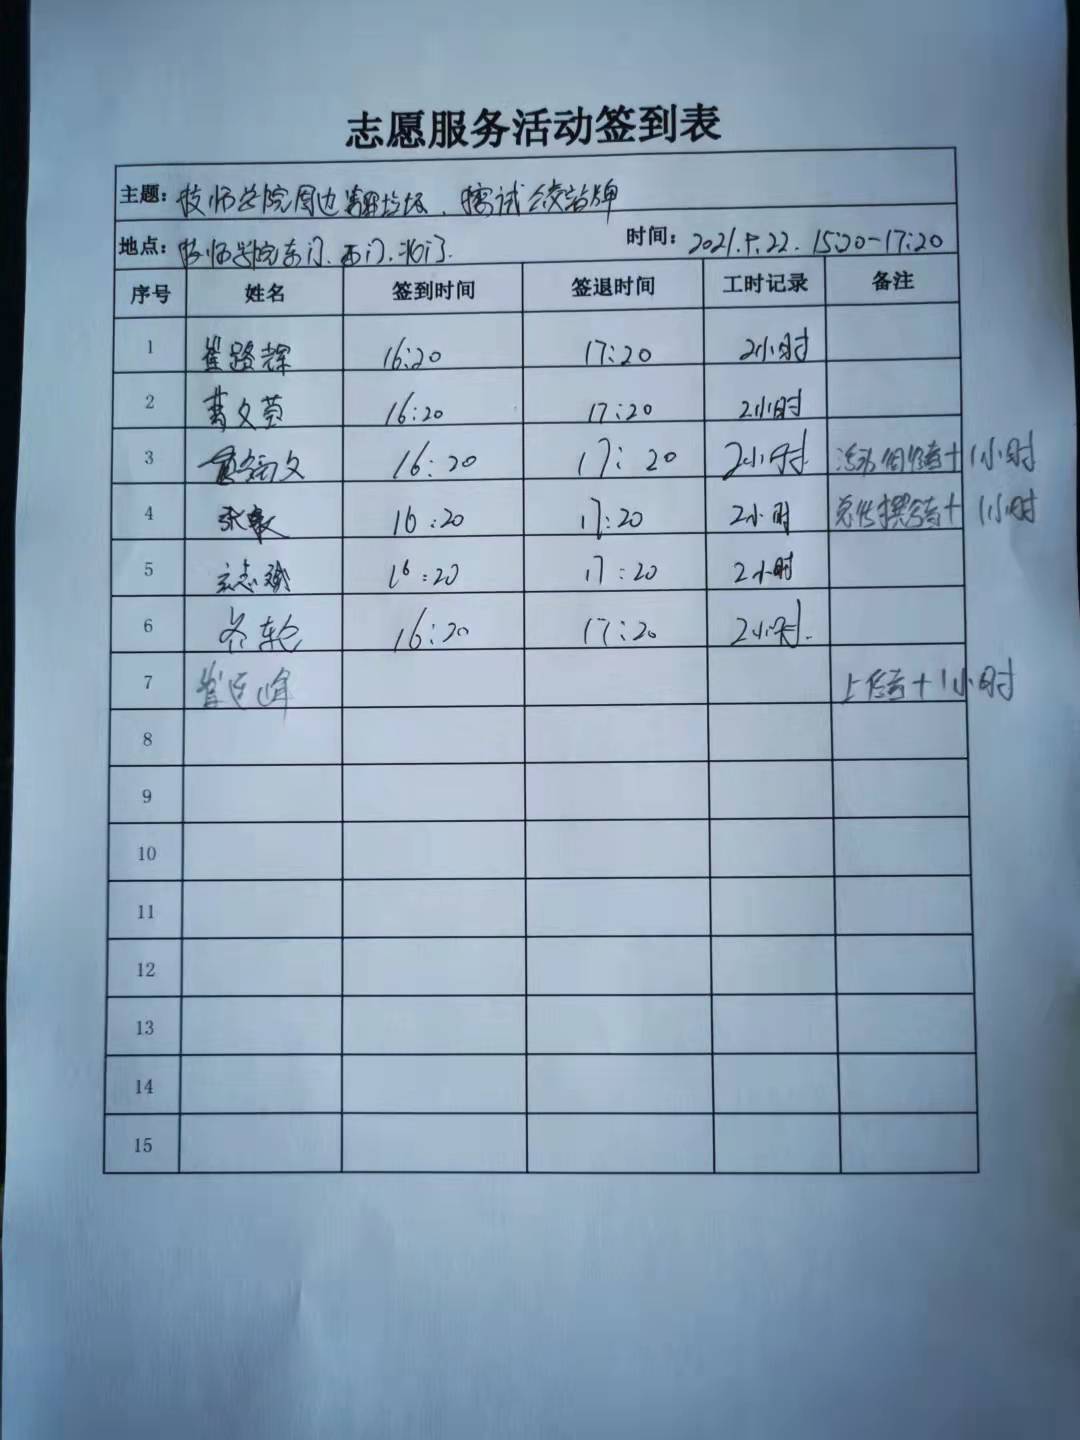 志愿服务活动签到表
主题：技师学院周边垃圾、擦试公交站牌
地点：技师学院东门.西门.北门. 时间：2021.5.22. 15:20-17:20
序号 姓名 签到时间 签退时间 工时记录 备注
1 崔路辉 16:20 17:20 2小时
2 文 16:20 17:20 2小时
3 文 16:20 17:20 2小时 活动组织者+1小时
4 张敏 16:20 17:20 2小时 宣传撰稿者+1小时
5 志斌 16:20 17:20 2小时
6 齐轮 16:20 17:20 2小时.
7 崔峰 上传者+1小时
8
9
10
11
12
13
14
15